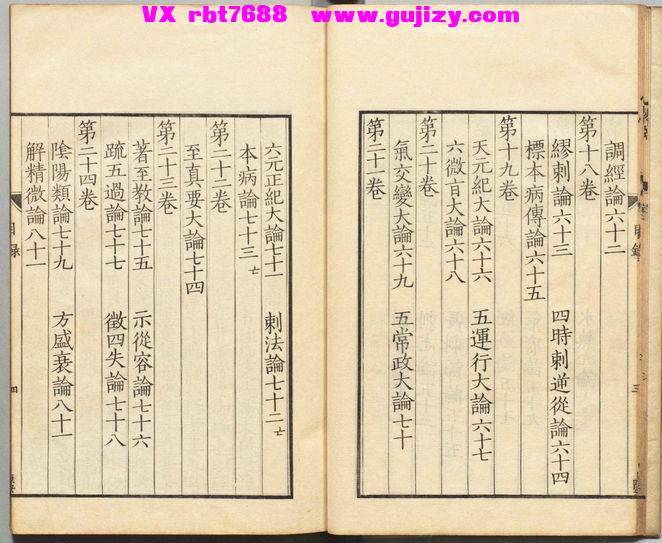 VX rbt7688 www.gujizy.com
目錄
三
調經論六十二
第十八卷
繆刺論六十三 四時刺逆從論六十四
標本病傳論六十五
第十九卷
天元紀大論六十六 五運行大論六十七
六微旨大論六十八
第二十卷
氣交變大論六十九 五常政大論七十
第二十一卷
六元正紀大論七十一 刺法論七十二亡
本病論七十三亡
第二十二卷
至真要大論七十四
第二十三卷
著至教論七十五 示從容論七十六
疏五過論七十七 徵四失論七十八
第二十四卷
陰陽類論七十九 方盛衰論八十一
解精微論八十一
目錄
四